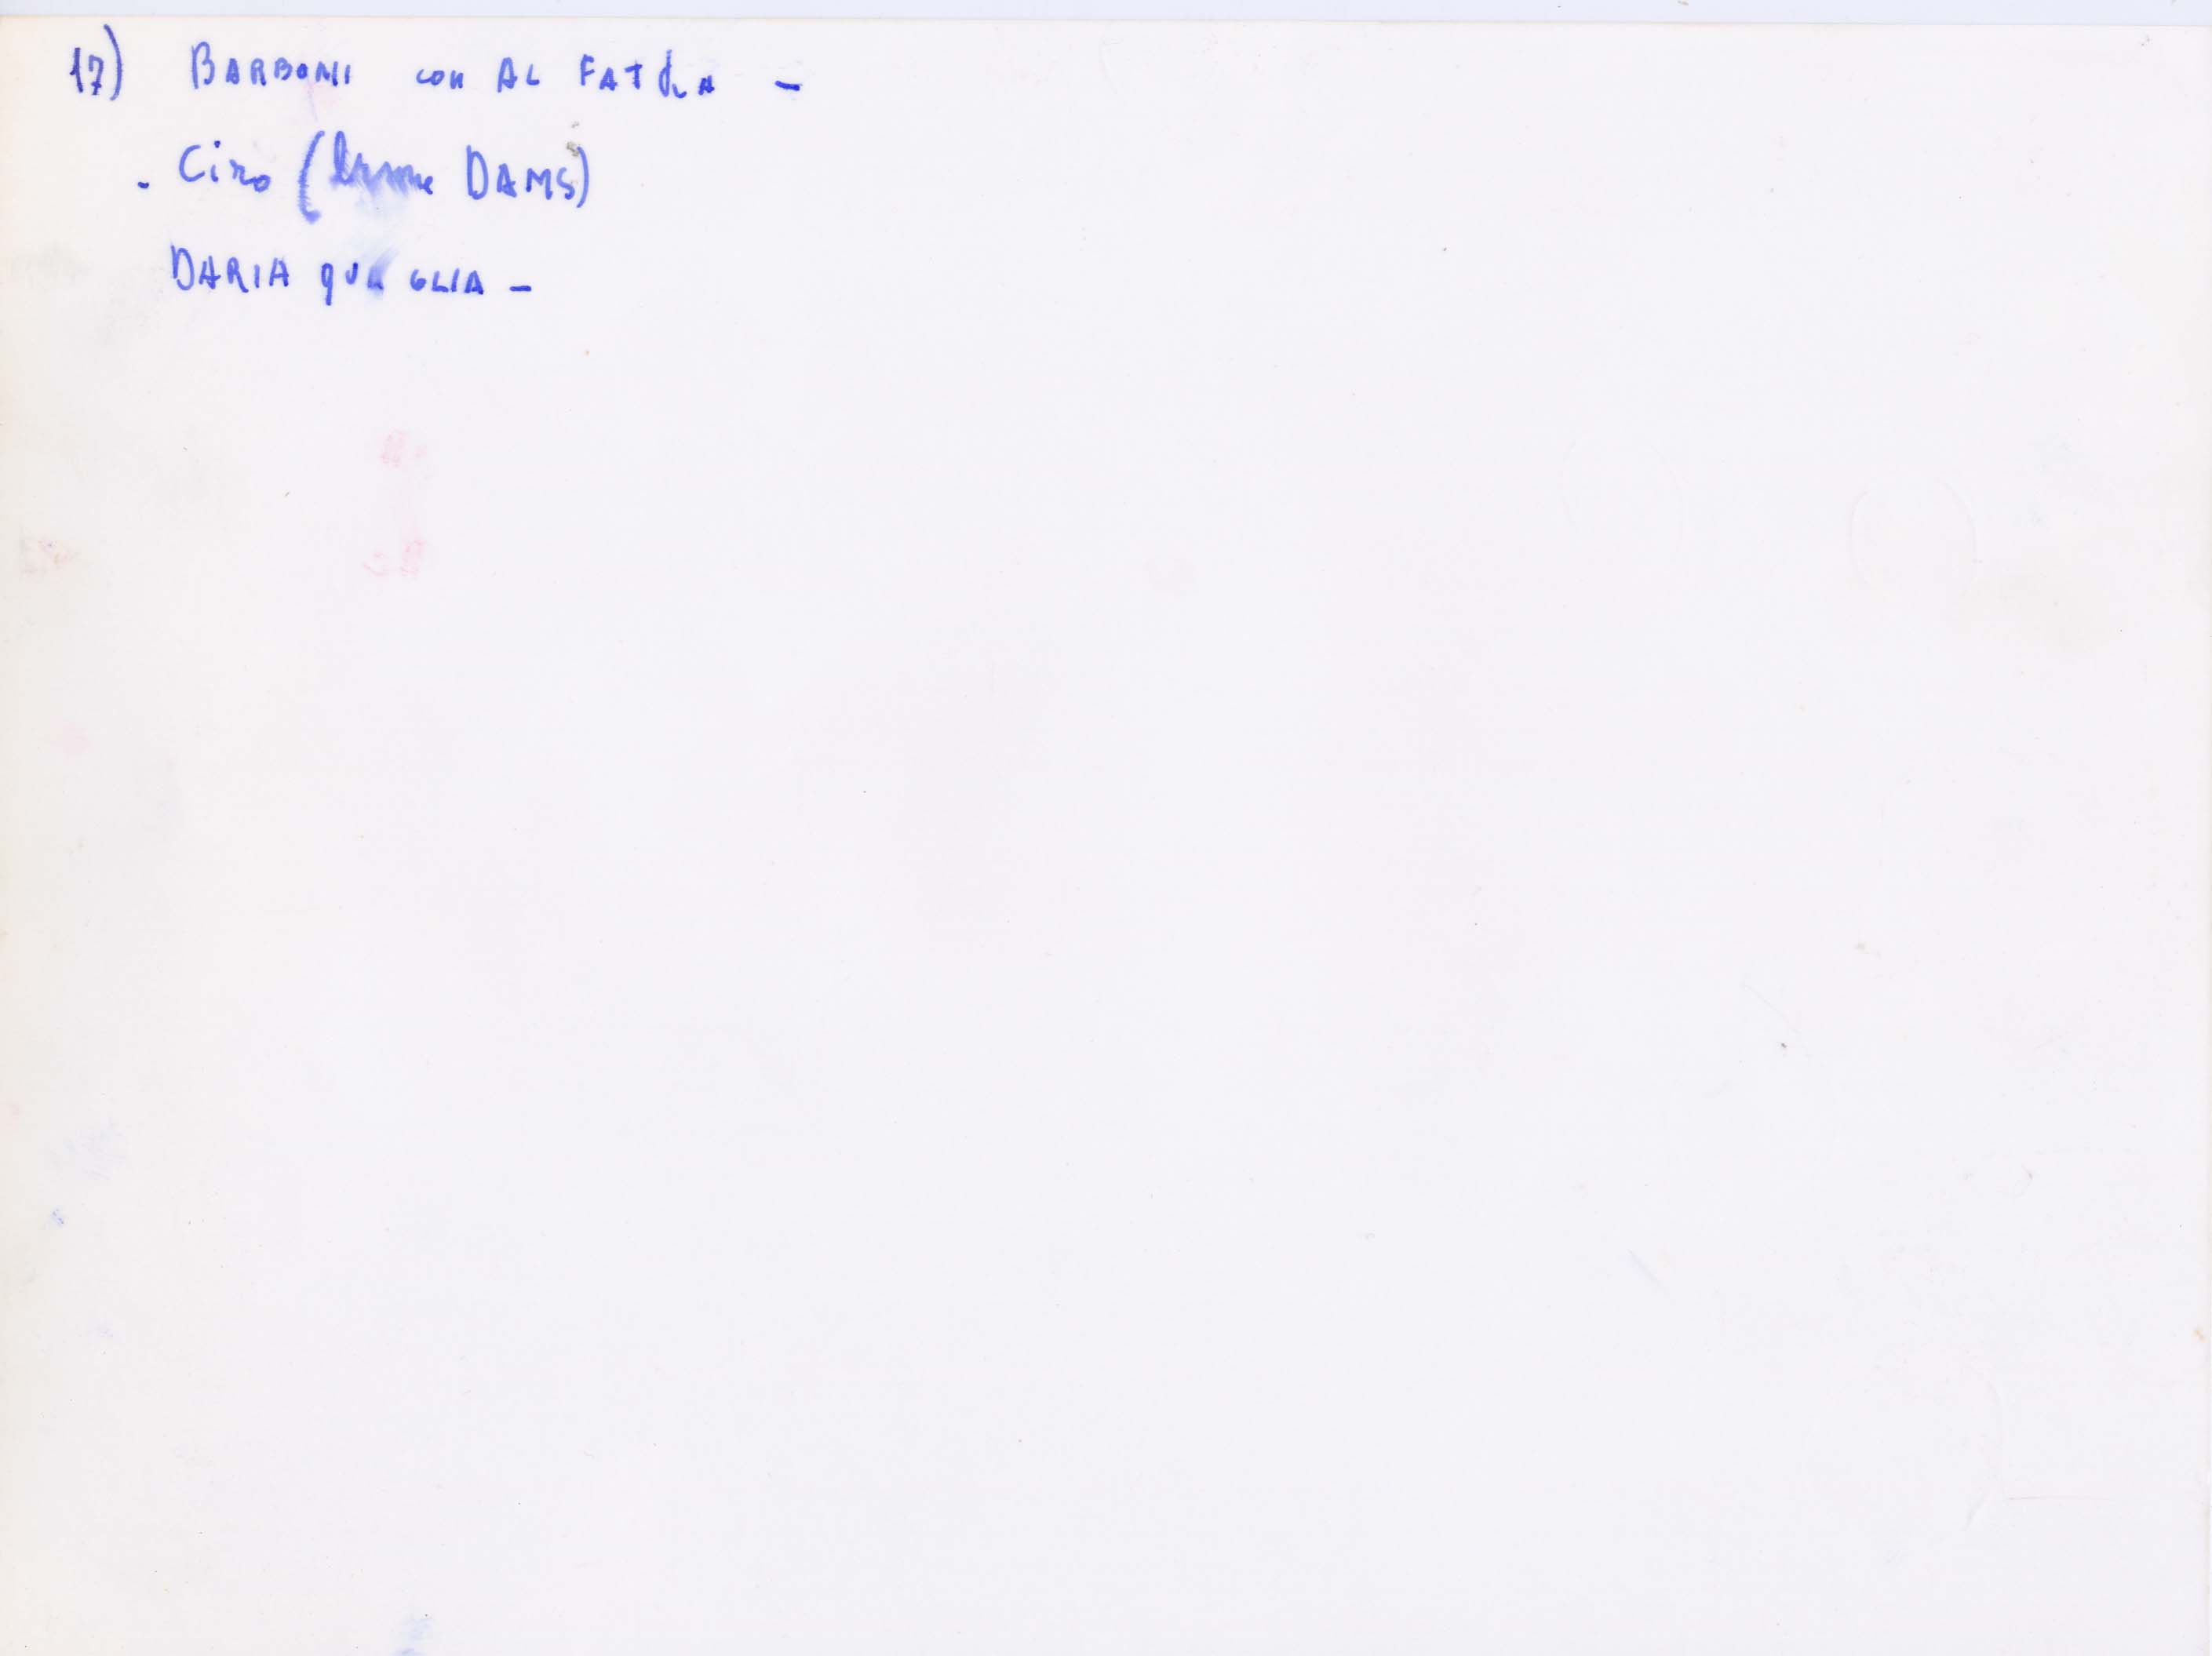 17) BARBONI con AL FATAH -
- Ciro ( DAMS)
DARIA QUAGLIA -